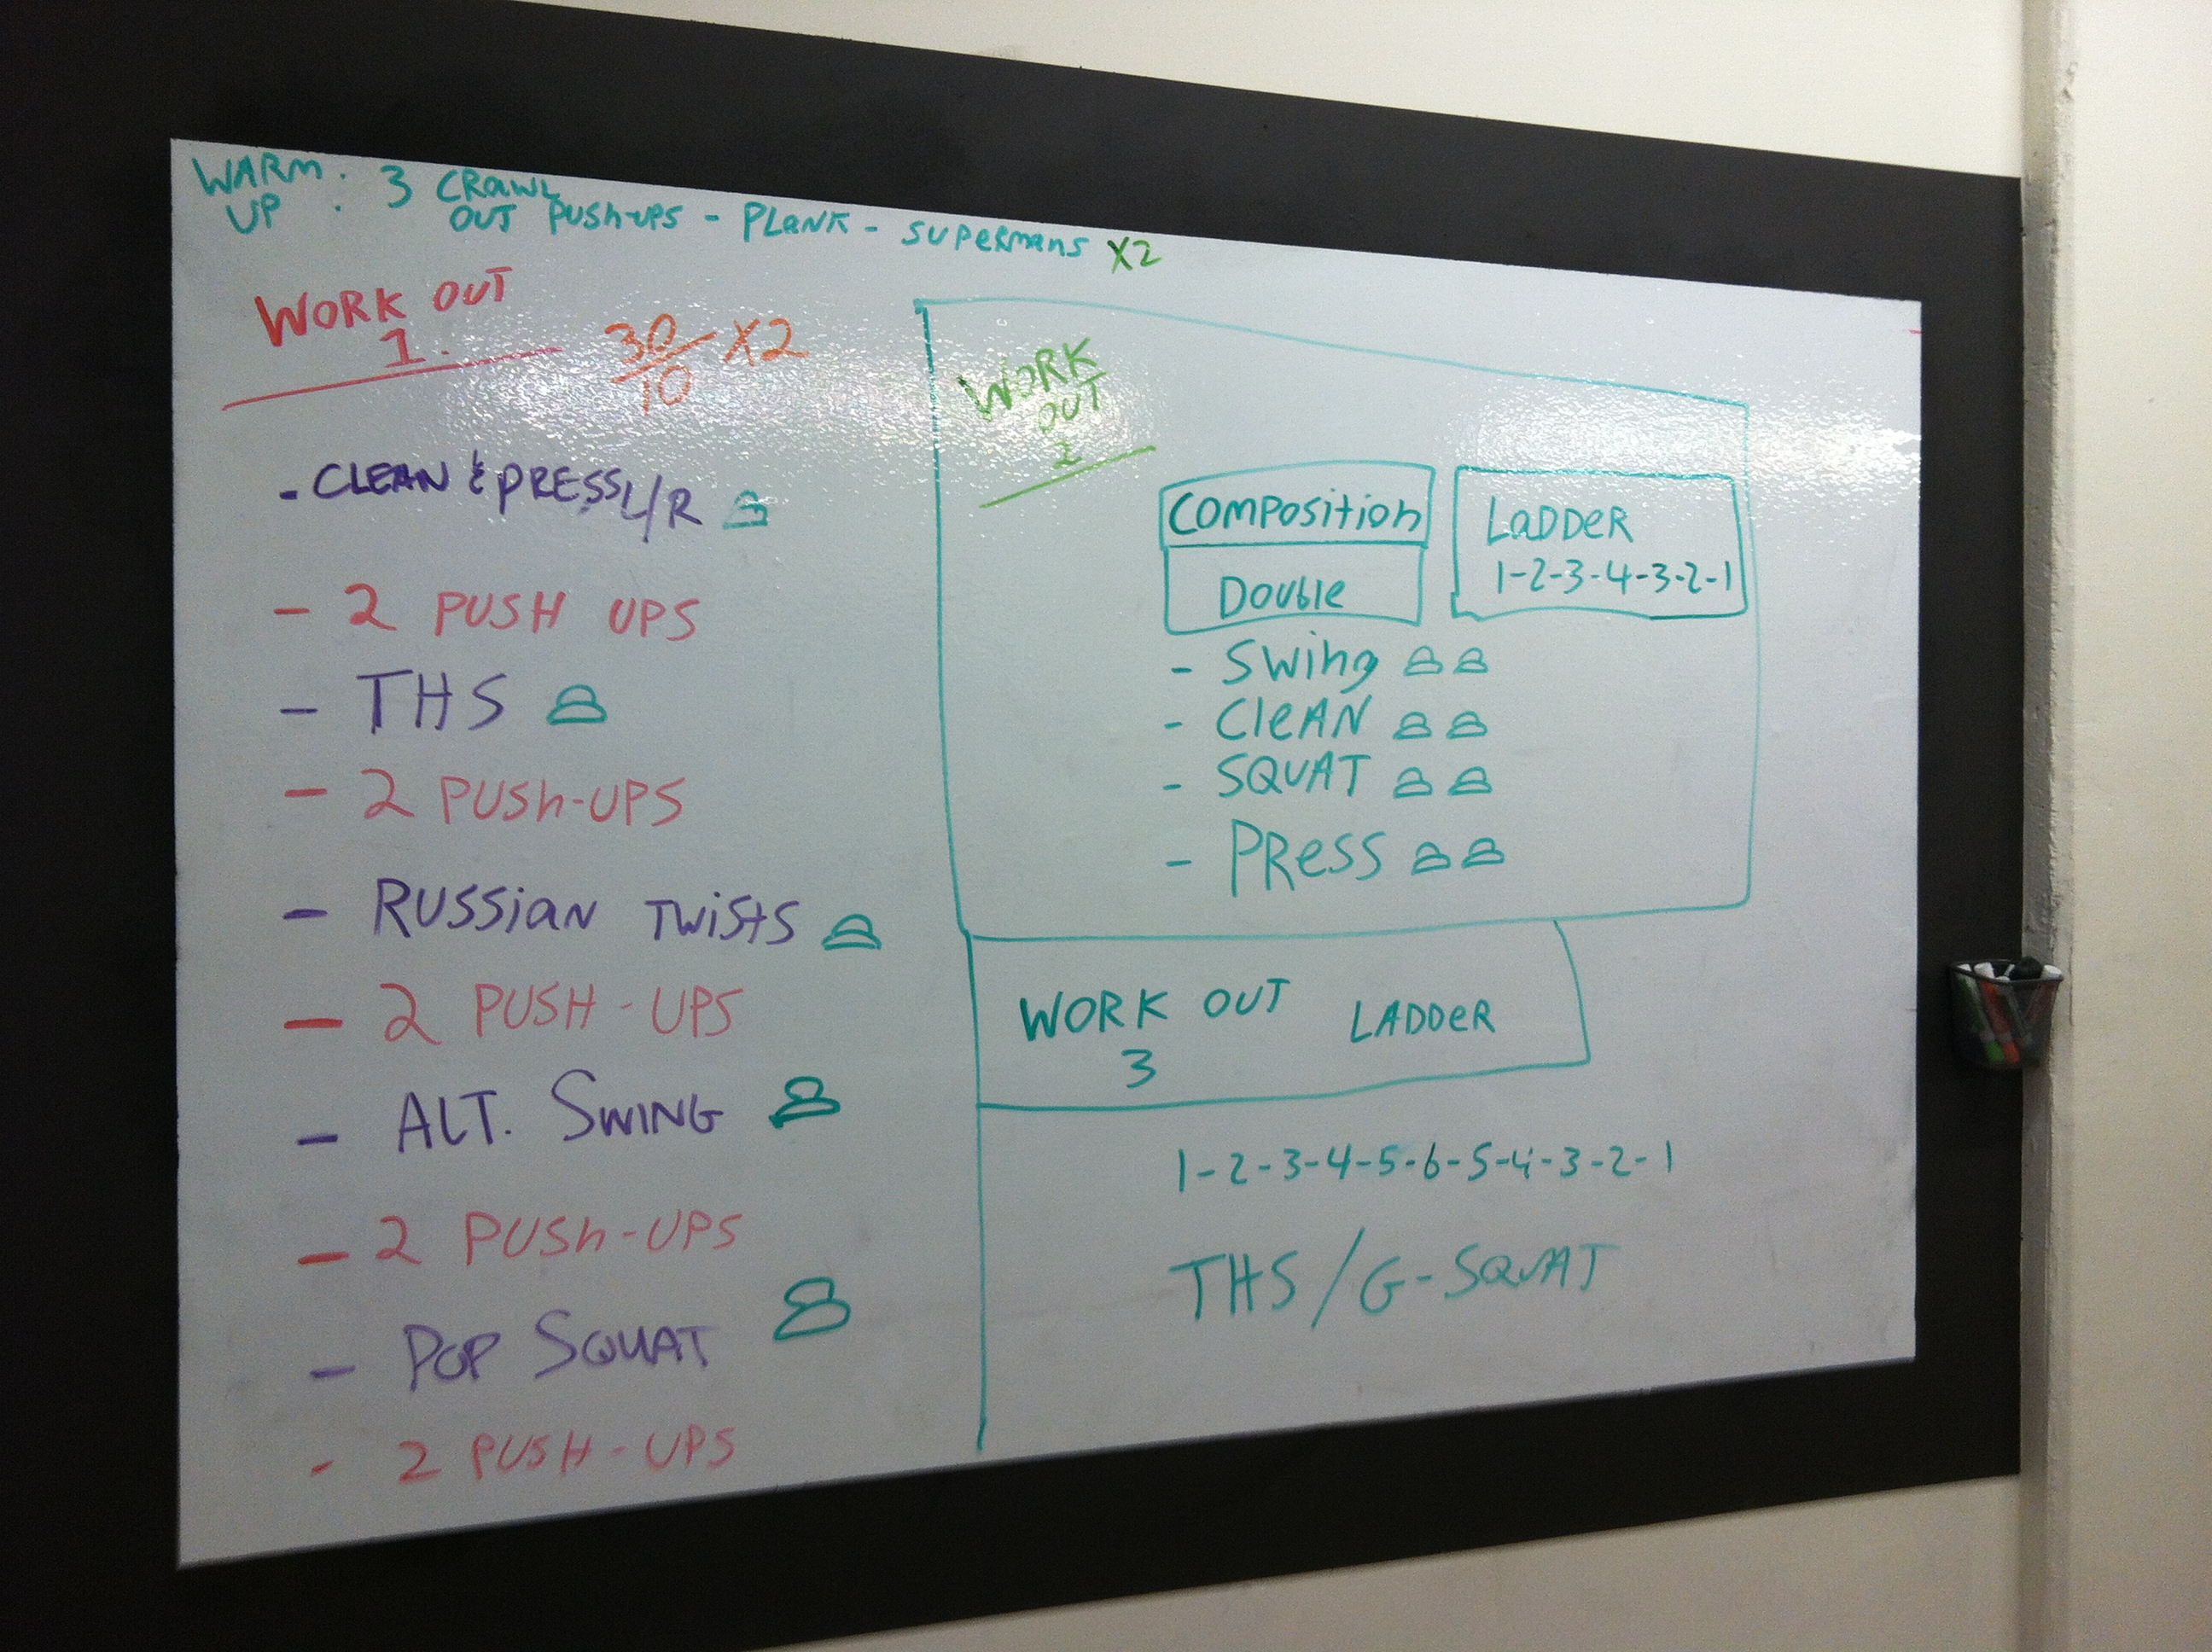 WARM UP : 3 CRAWL OUT PUSH-UPS - PLANK - SUPERMANS X2
WORK OUT
1.
30/10 X2
- CLEAN & PRESS L/R
- 2 PUSH UPS
- THS
- 2 PUSH-UPS
- RUSSIAN TWISTS
- 2 PUSH-UPS
- ALT. SWING
- 2 PUSH-UPS
- POP SQUAT
- 2 PUSH-UPS
WORK
OUT
2
COMPOSITION
DOUBLE
LADDER
1-2-3-4-3-2-1
- SWING
- CLEAN
- SQUAT
- PRESS
WORK OUT LADDER
3
1-2-3-4-5-6-5-4-3-2-1
THS/G-SQUAT